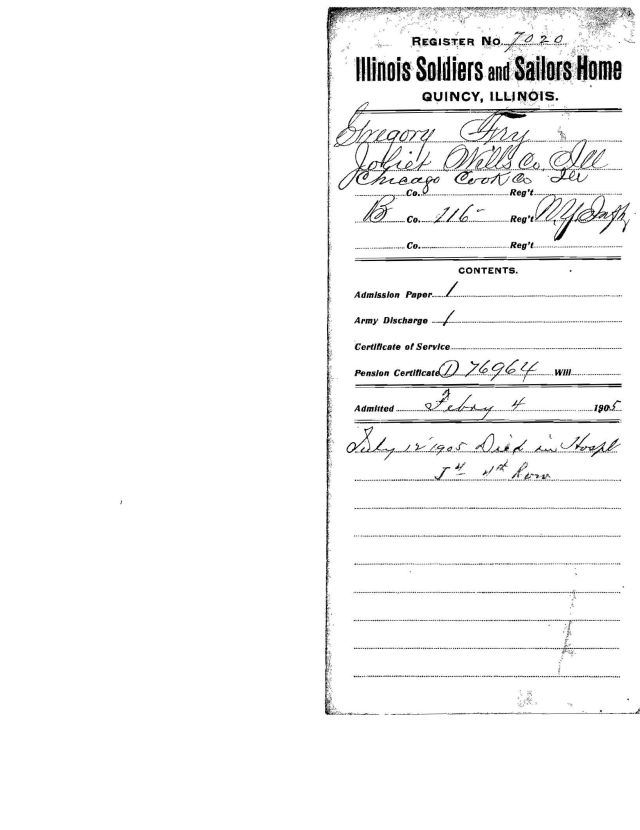 REGISTER NO. 7020
Illinois Soldiers and Sailors Home
QUINCY, ILLINOIS.
Gregory Fry
Joliet Wills Co. Ill
Chicago Cook Co Ill
Co. Reg't
B Co. 116 Reg't N.Y. Inft,
Co. Reg't
CONTENTS.
Admission Paper 1
Army Discharge 1
Certificate of Service
Pension Certificate (1) 76964 Will
Admitted Feby 4 1905
July 12 1905 Died in Hospl
4th Row